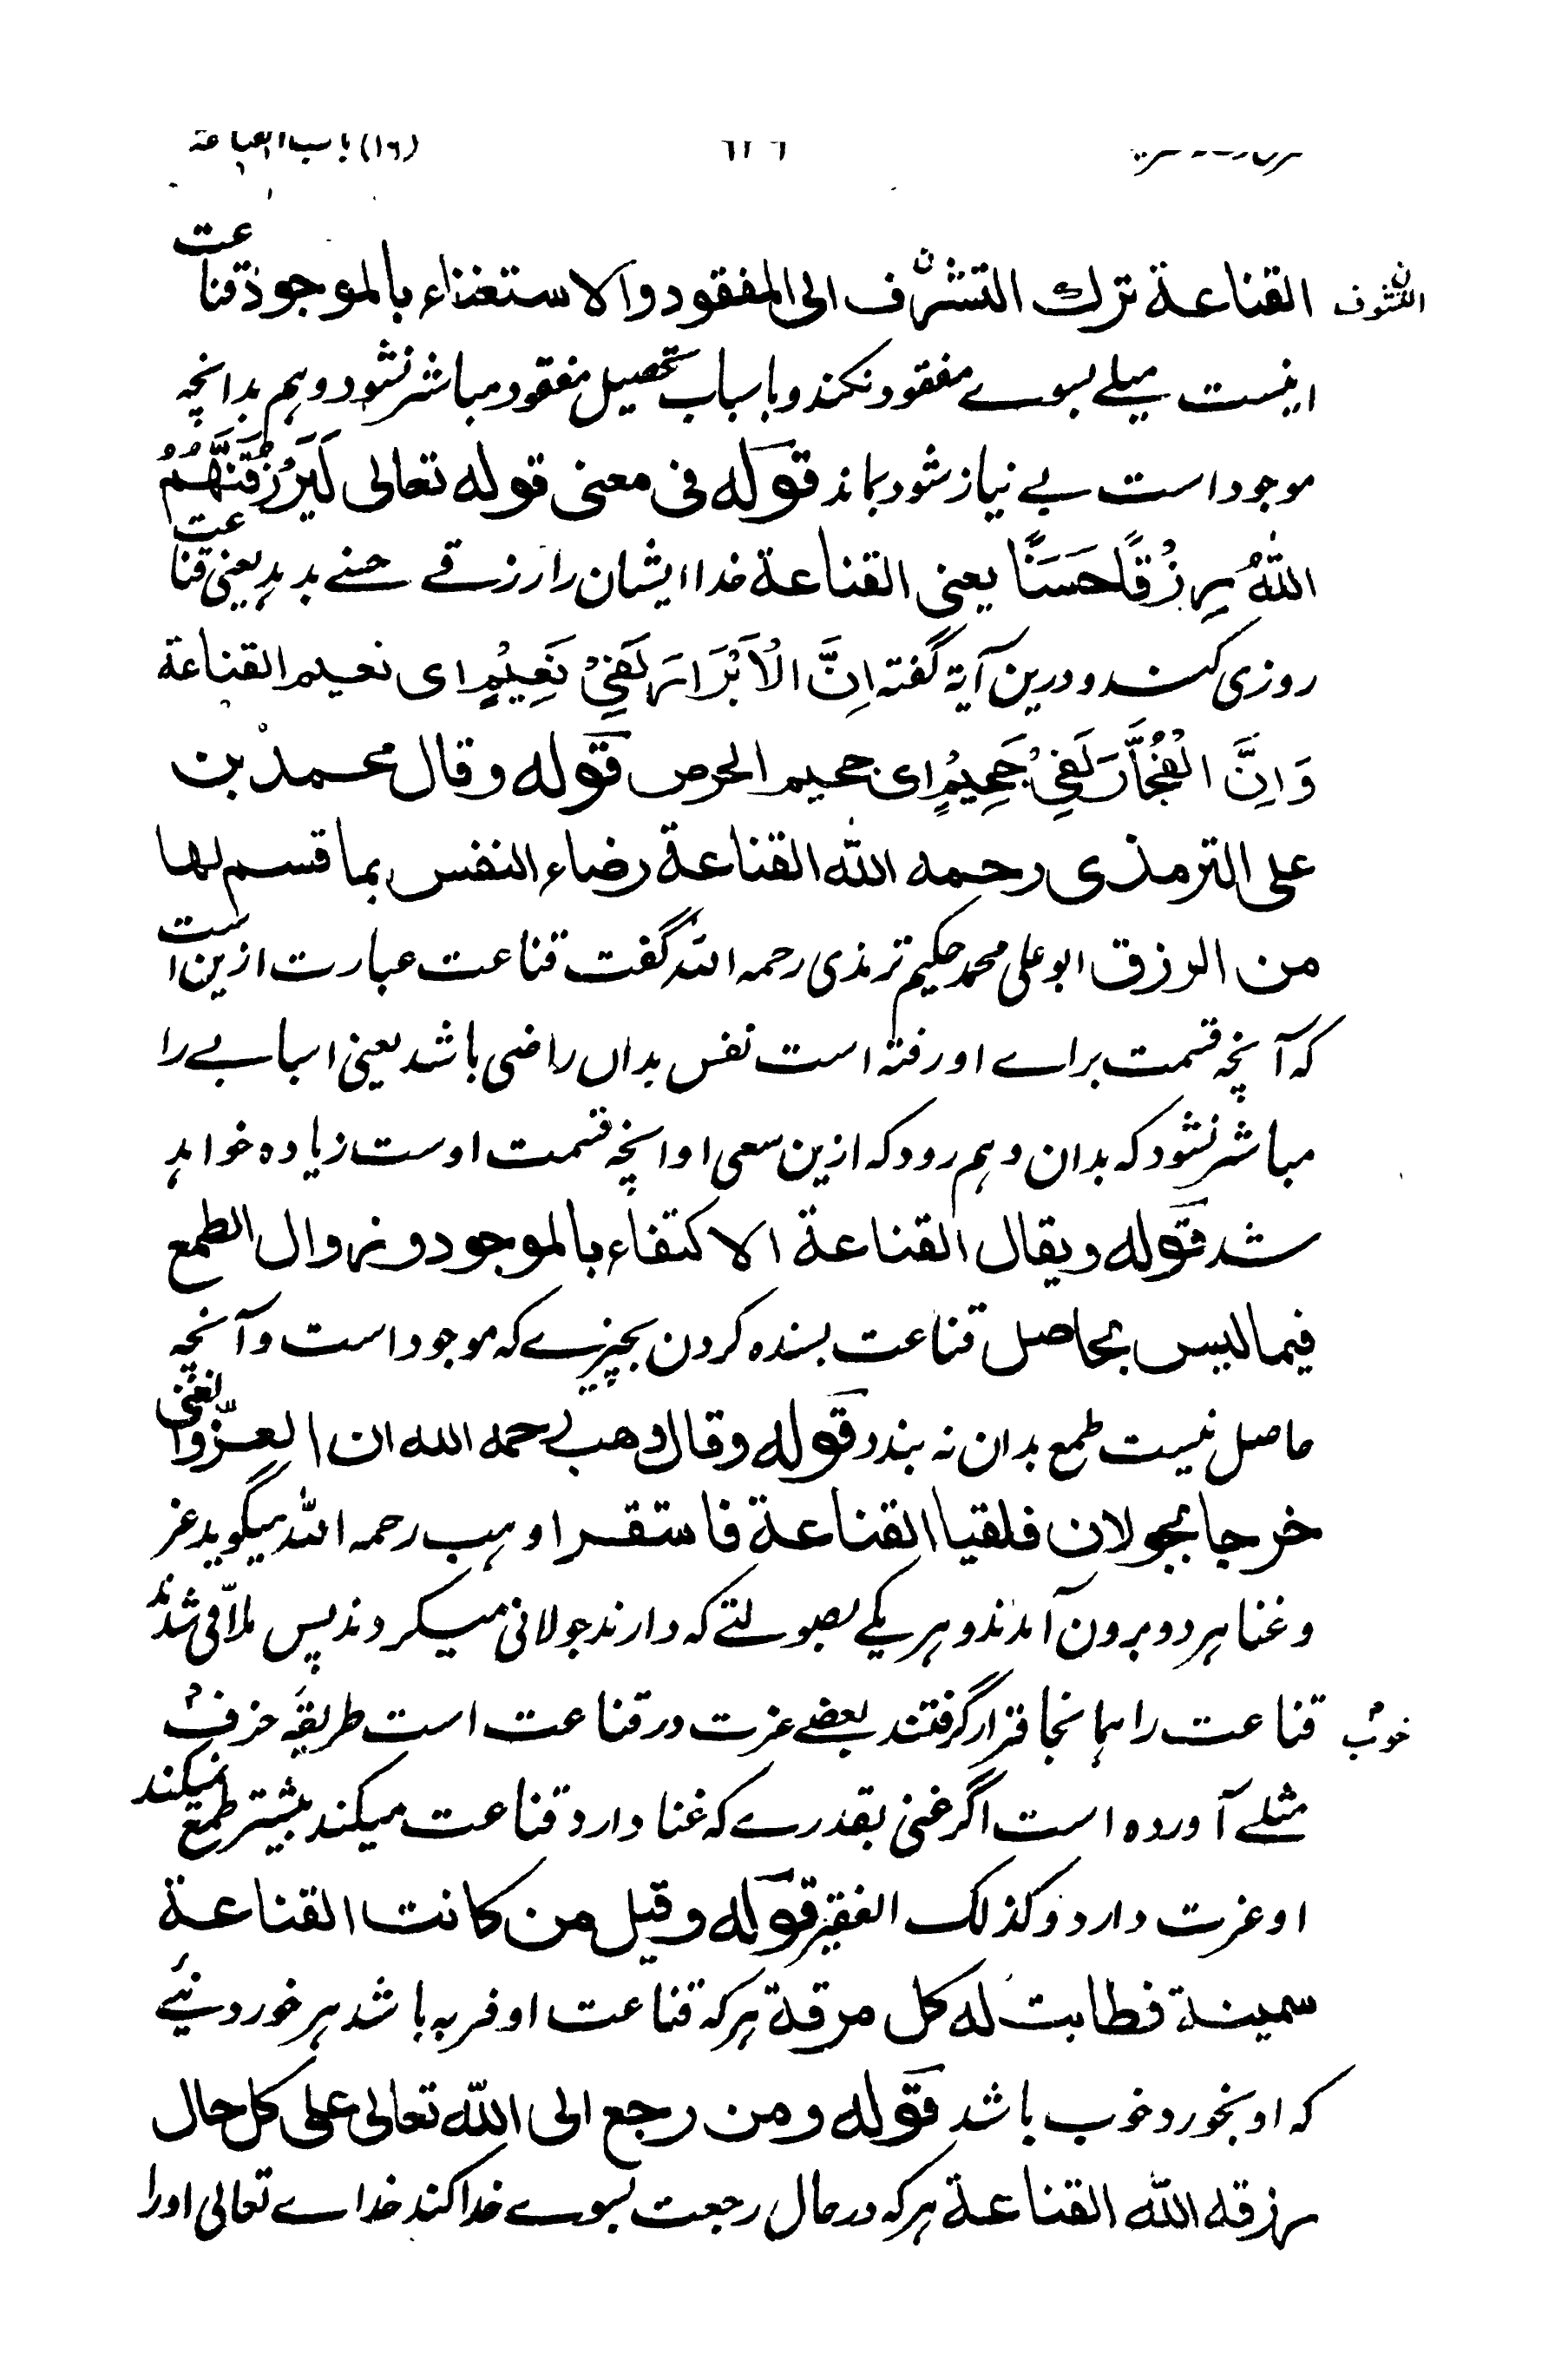 (۱۶) باب القناعة
القناعة ترك التشرف الى المفقود والاستغناء بالموجود قناعت
التشوف ن
اینست میلے بسوے مفقود نکند و باسباب تحصیل مفقود مباشر نشود و ہم بدانچہ
موجود است بے نیاز شود بماند قوله فى معنى قوله تعالى لَيَرْزُقَنَّهُمُ
اللّٰهُ رِزْقًا حَسَنًا يعنى القناعة خدا ایشان را رزقے حسنے بدہد یعنی قناعت
روزی کند و درین آیة گفتہ اِنَّ الْاَبْرَارَ لَفِيْ نَعِيْمٍ اى نعيم القناعة
وَاِنَّ الْفُجَّارَ لَفِيْ جَحِيْمٍ اى جحيم الحرص قوله وقال محمد بن
على الترمذى رحمه الله القناعة رضاء النفس بما قسم لها
من الرزق ابو علی محمد حکیم ترمذی رحمہ اللہ گفت قناعت عبارت ازین است
کہ آنچہ قسمت براے او رفتہ است نفس بداں راضی باشد یعنی اسبابے را
مباشر نشود کہ بدان وہم رود کہ ازین سعی او انچہ قسمت اوست زیادہ خواہد
شد قوله ويقال القناعة الاكتفاء بالموجود وزوال الطمع
فيما ليس بحاصل قناعت بسندہ کردن بچیزے کہ موجود است و آنچہ
حاصل نیست طمع بدان نہ بندد قوله وقال وهب رحمه الله ان العزّ والغنى
خرجا يجولان فلقيا القناعة فاستقرا وہب رحمہ اللہ میگوید عز
و غنا ہر دو برون آمدند و ہر یکے بصولتے کہ دارند جولانی میکردند پس ملاقی شدند
قناعت را ہمانجا قرار گرفتند بعضے عزت در قناعت است طریقۂ حزف
خوب
مثلے آوردہ است اگر غنی بقدرے کہ غنا دارد قناعت میکند بیشتر طمع نمیکند
او عزت دارد و کذلک الفقیر قوله وقيل من كانت القناعة
سمينة فطابت له كل مرقة ہر کہ قناعت او فربہ باشد ہر خوردنیٔے
کہ او بخورد خوب باشد قوله ومن رجع الى الله تعالى على كل حال
رزقه الله القناعة ہر کہ در حال رجعت بسوے خدا کند خداے تعالی او را